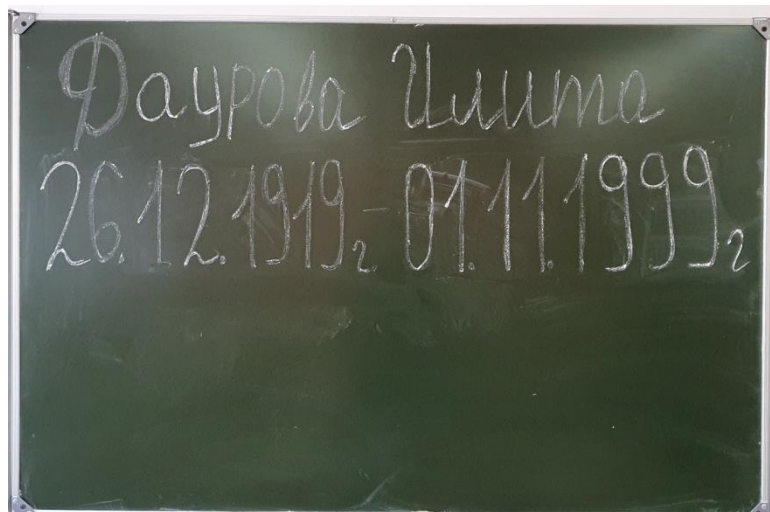 Даурова Илита
26.12.1919г. - 01.11.1999г